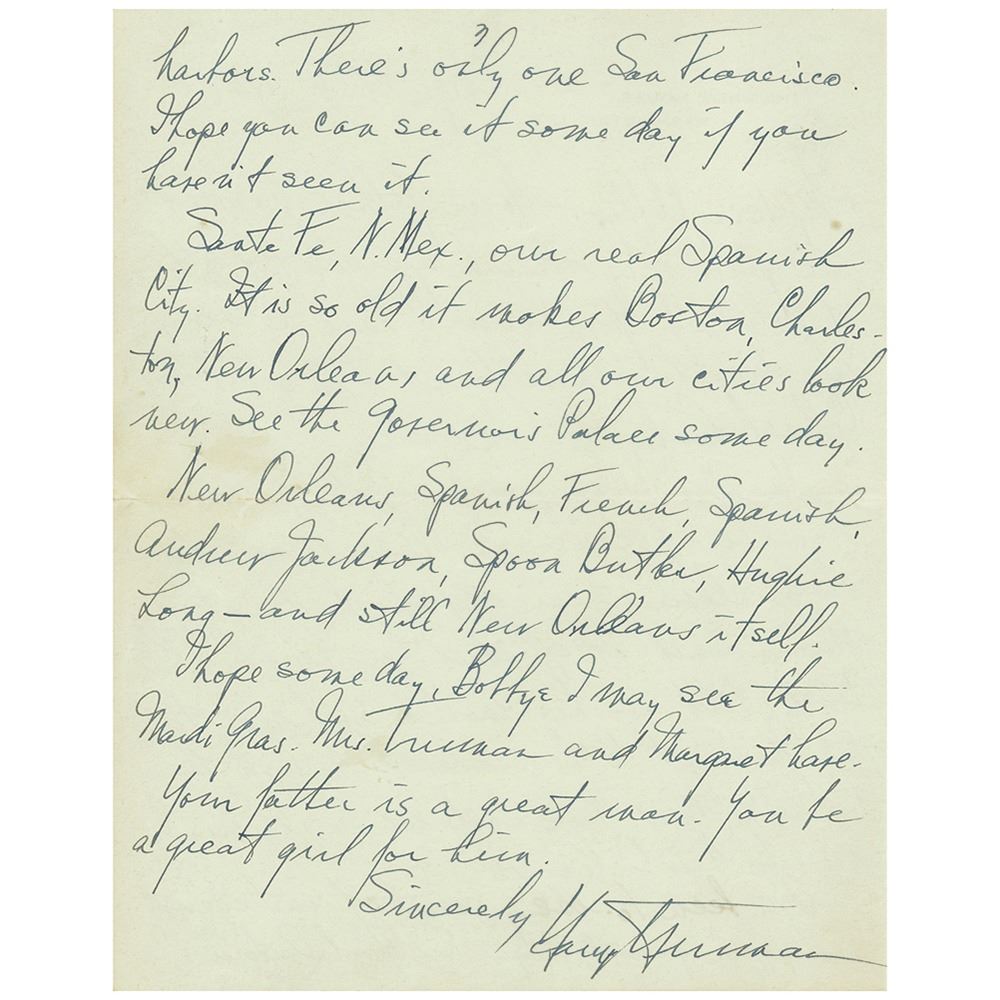 3
harbors. There's only one San Francisco.
I hope you can see it some day if you
haven't seen it.
Santa Fe, N. Mex., our real Spanish
City. It is so old it makes Boston, Charles-
ton, New Orleans and all our cities look
new. See the Governor's Palace some day.
New Orleans, Spanish, French, Spanish,
Andrew Jackson, Spoon Butler, Hughie
Long—and still New Orleans itself.
I hope some day, Bobbye I may see the
Mardi Gras. Mrs. Truman and Margaret have.
Your father is a great man. You be
a great girl for him.
Sincerely
Harry Truman